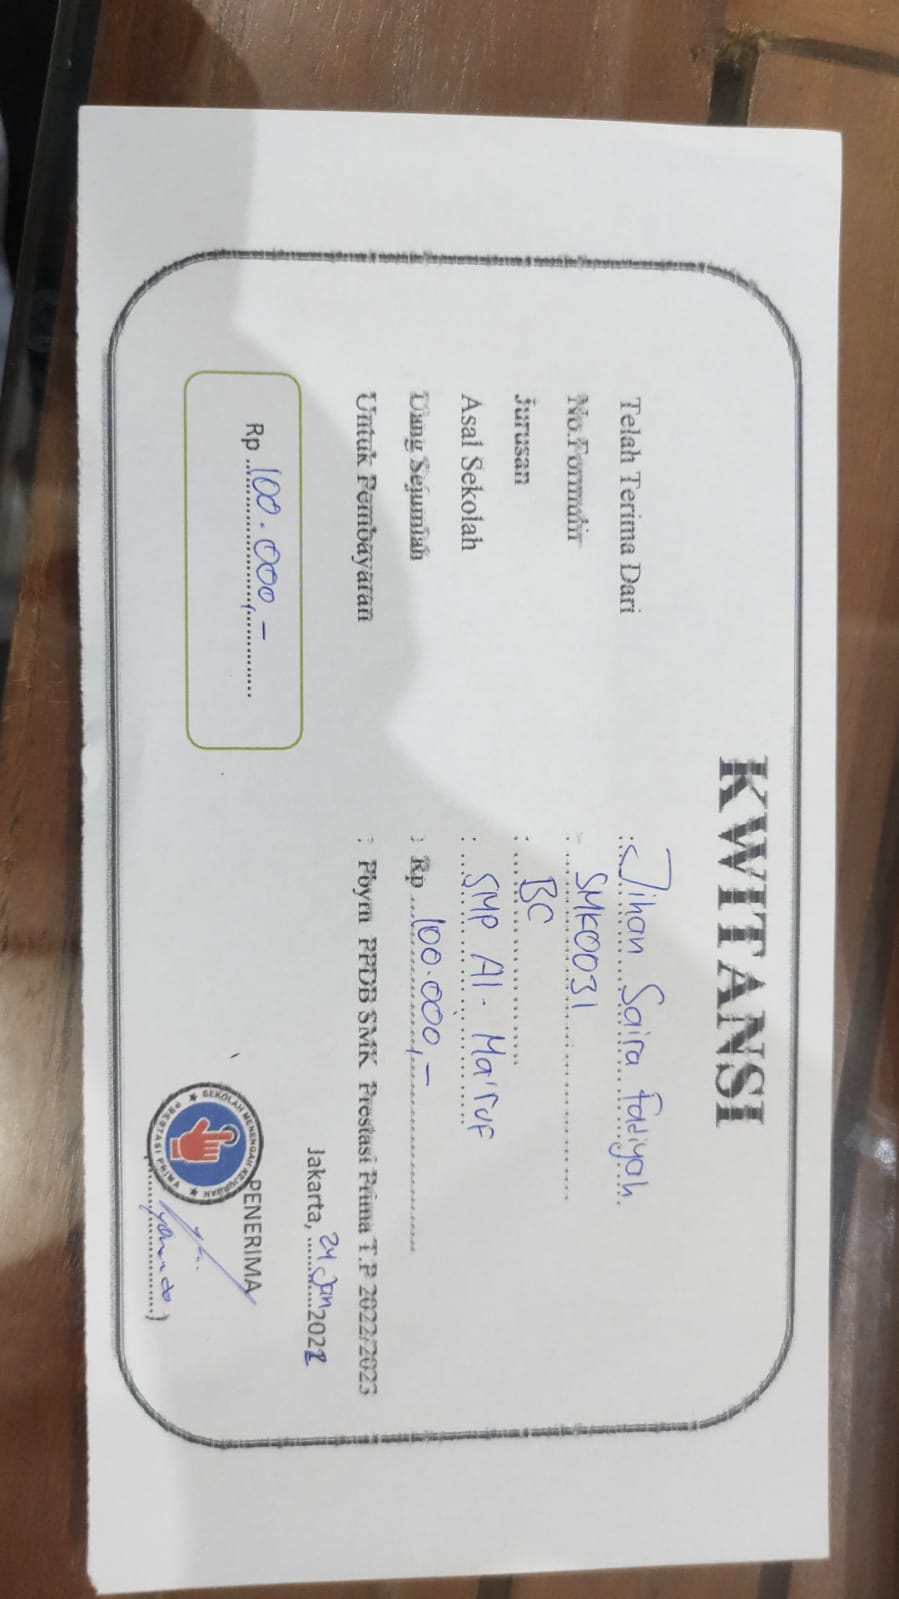 KWITANSI
Telah Terima Dari : Jihan Saira Fadiyah
No.Formulir : SMK0031
Jurusan : BC
Asal Sekolah : SMP Al-Ma'ruf
Uang Sejumlah : Rp 100.000,-
Untuk Pembayaran : Pbyrn PPDB SMK Prestasi Prima T.P 2022/2023
Jakarta, 24 Jan 2022
Rp 100.000,-
PENERIMA
SEKOLAH MENENGAH KEJURUAN
PRESTASI PRIMA